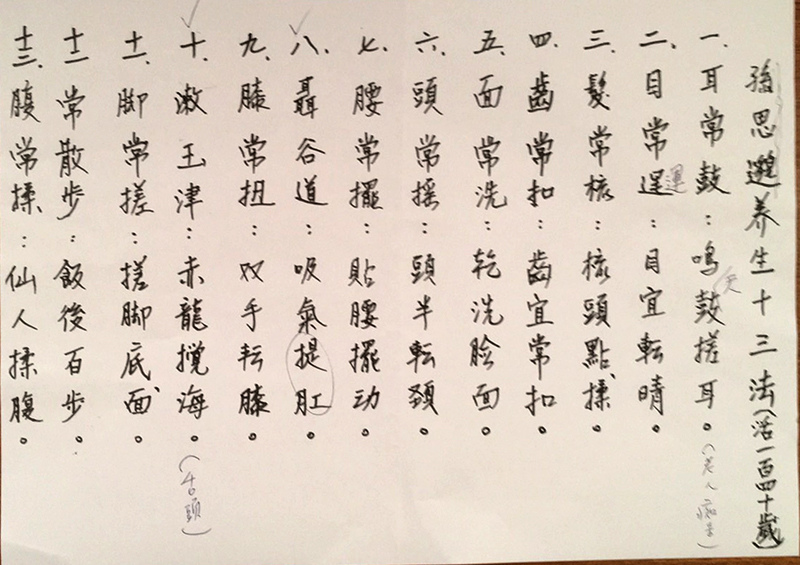 孫思邈养生十三法(活一百四十歲)
一、耳常鼓：鳴鼓搓耳。(老人癡呆)
天
二、目常逞：目宜転晴。
運
三、髮常梳：梳頭點、揉。
四、齒常扣：齒宜常扣。
五、面常洗：乾洗脸面。
六、頭常摇：頭半転颈。
七、腰常擺：貼腰擺动。
八、聶谷道：吸氣提肛。
九、膝常扭：双手転膝。
十、漱玉津：赤龍搅海。(舌頭)
十一、脚常搓：搓脚底面。
十二常散步：飯後百步。
十三、腹常揉：仙人揉腹。